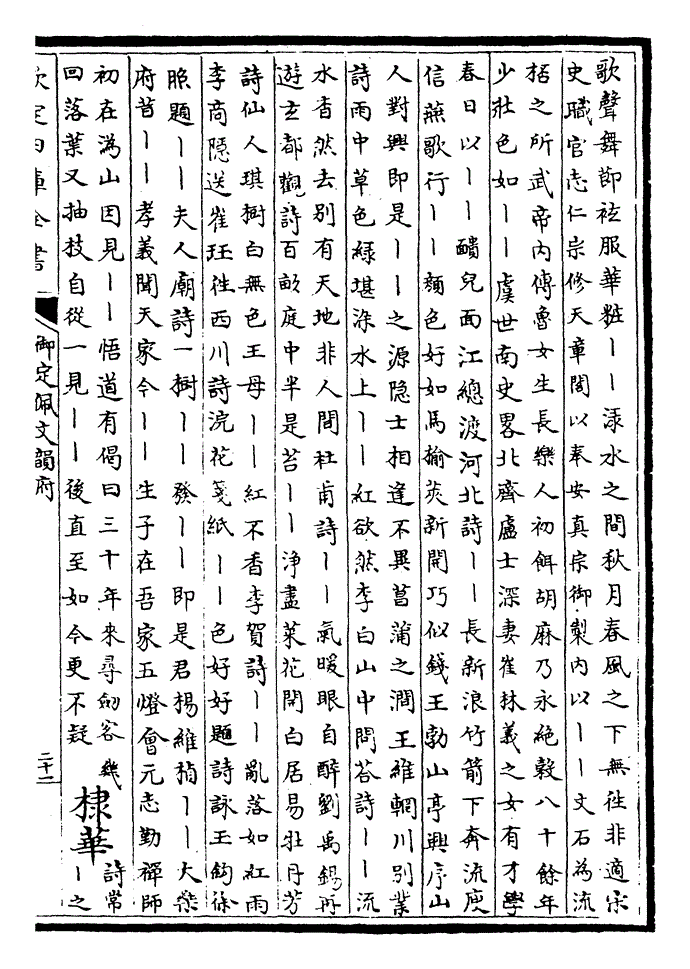 歌聲舞節袨服華粧丨丨渌水之間秋月春風之下無徃非適宋
史職官志仁宗修天章閣以奉安真宗御製内以丨丨文石為流
桮之所武帝内傳魯女生長樂人初餌胡麻乃永絶穀八十餘年
少壯色如丨丨虞世南史畧北齊盧士深妻崔林義之女有才學
春日以丨丨靧兒面江總渡河北詩丨丨長新浪竹箭下奔流庾
信燕歌行丨丨顔色好如馬榆莢新開巧似錢王勃山亭興序山
人對興即是丨丨之源隐士相逢不異菖蒲之澗王維輞川别業
詩雨中草色緑堪染水上丨丨紅欲然李白山中問答詩丨丨流
水杳然去别有天地非人間杜甫詩丨丨氣暖眼自醉劉禹錫再
遊玄都觀詩百畝庭中半是苔丨丨浄盡菜花開白居易牡丹芳
詩仙人琪樹白無色王母丨丨紅不香李賀詩丨丨亂落如紅雨
李商隠送崔珏徃西川詩浣花箋紙丨丨色好好題詩詠玉鉤徐
熙題丨丨夫人廟詩一樹丨丨發丨丨即是君楊維楨丨丨犬樂
府昔丨丨孝義聞天家今丨丨生子在吾家五燈會元志勤禪師
初在溈山因見丨丨悟道有偈曰三十年來尋劒客幾
回落葉又抽枝自從一見丨丨後直至如今更不疑
棣華
詩常
丨之
欽定四庫全書
御定佩文韻府
二十二